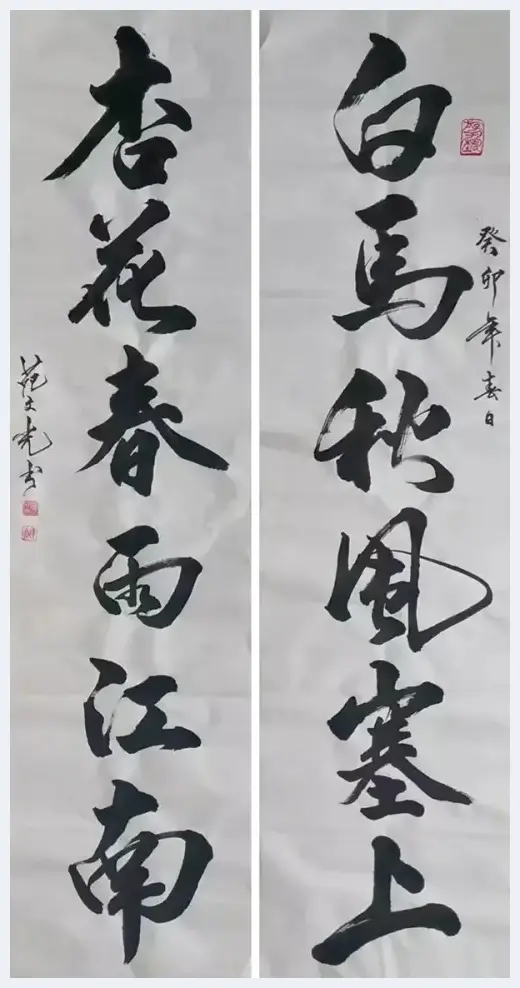 癸卯年春日
白马秋风塞上
杏花春雨江南
范文光书